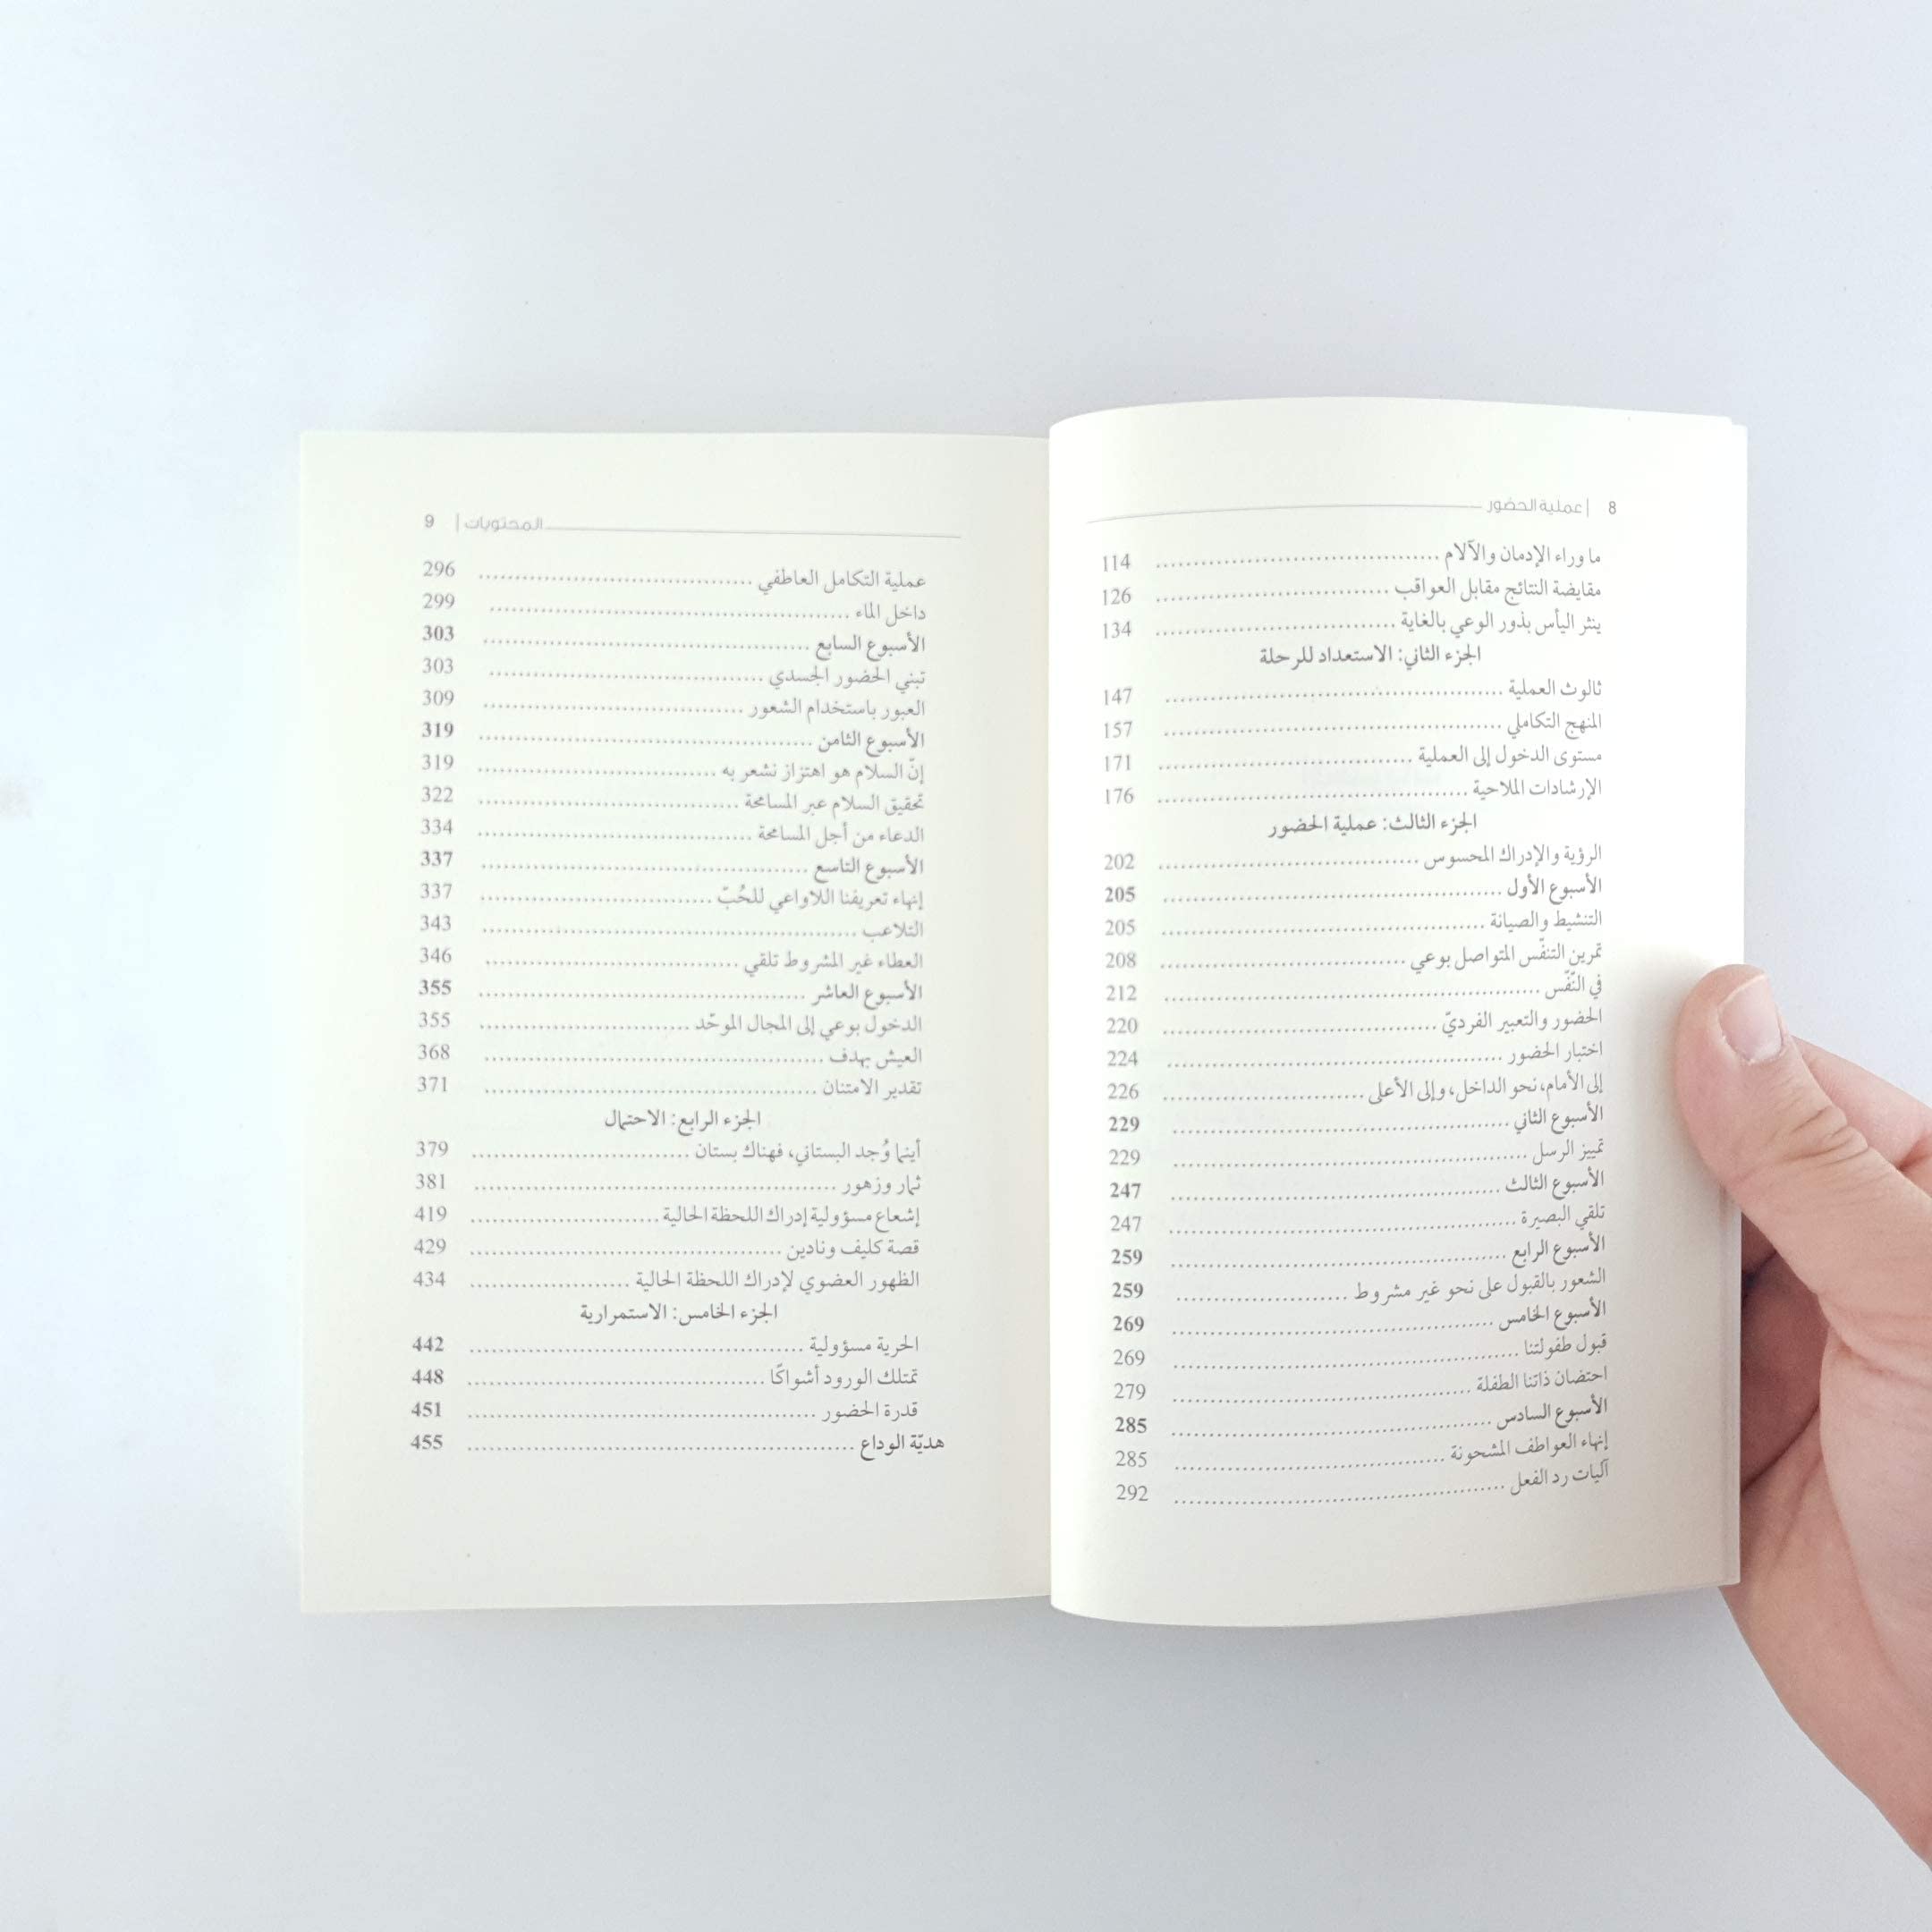 8 | عملية الحضور
ما وراء الإدمان والآلام ........ 114
مقايضة النتائج مقابل العواقب ........ 126
ينثر اليأس بذور الوعي بالغاية ........ 134
الجزء الثاني: الاستعداد للرحلة
ثالوث العملية ........ 147
المنهج التكاملي ........ 157
مستوى الدخول إلى العملية ........ 171
الإرشادات الملاحية ........ 176
الجزء الثالث: عملية الحضور
الرؤية والإدراك المحسوس ........ 202
الأسبوع الأول ........ 205
التنشيط والصيانة ........ 205
تمرين التنفّس المتواصل بوعي ........ 208
في النّفّس ........ 212
الحضور والتعبير الفرديّ ........ 220
اختبار الحضور ........ 224
إلى الأمام، نحو الداخل، وإلى الأعلى ........ 226
الأسبوع الثاني ........ 229
تمييز الرسل ........ 229
الأسبوع الثالث ........ 247
تلقي البصيرة ........ 247
الأسبوع الرابع ........ 259
الشعور بالقبول على نحو غير مشروط ........ 259
الأسبوع الخامس ........ 269
قبول طفولتنا ........ 269
احتضان ذاتنا الطفلة ........ 279
الأسبوع السادس ........ 285
إنهاء العواطف المشحونة ........ 285
آليات رد الفعل ........ 292
المحتويات | 9
عملية التكامل العاطفي ........ 296
داخل الماء ........ 299
الأسبوع السابع ........ 303
تبني الحضور الجسدي ........ 303
العبور باستخدام الشعور ........ 309
الأسبوع الثامن ........ 319
إنّ السلام هو اهتزاز نشعر به ........ 319
تحقيق السلام عبر المسامحة ........ 322
الدعاء من أجل المسامحة ........ 334
الأسبوع التاسع ........ 337
إنهاء تعريفنا اللاواعي للحُبّ ........ 337
التلاعب ........ 343
العطاء غير المشروط تلقي ........ 346
الأسبوع العاشر ........ 355
الدخول بوعي إلى المجال الموحّد ........ 355
العيش بهدف ........ 368
تقدير الامتنان ........ 371
الجزء الرابع: الاحتمال
أينما وُجد البستاني، فهناك بستان ........ 379
ثمار وزهور ........ 381
إشعاع مسؤولية إدراك اللحظة الحالية ........ 419
قصة كليف ونادين ........ 429
الظهور العضوي لإدراك اللحظة الحالية ........ 434
الجزء الخامس: الاستمرارية
الحرية مسؤولية ........ 442
تمتلك الورود أشواكًا ........ 448
قدرة الحضور ........ 451
هديّة الوداع ........ 455